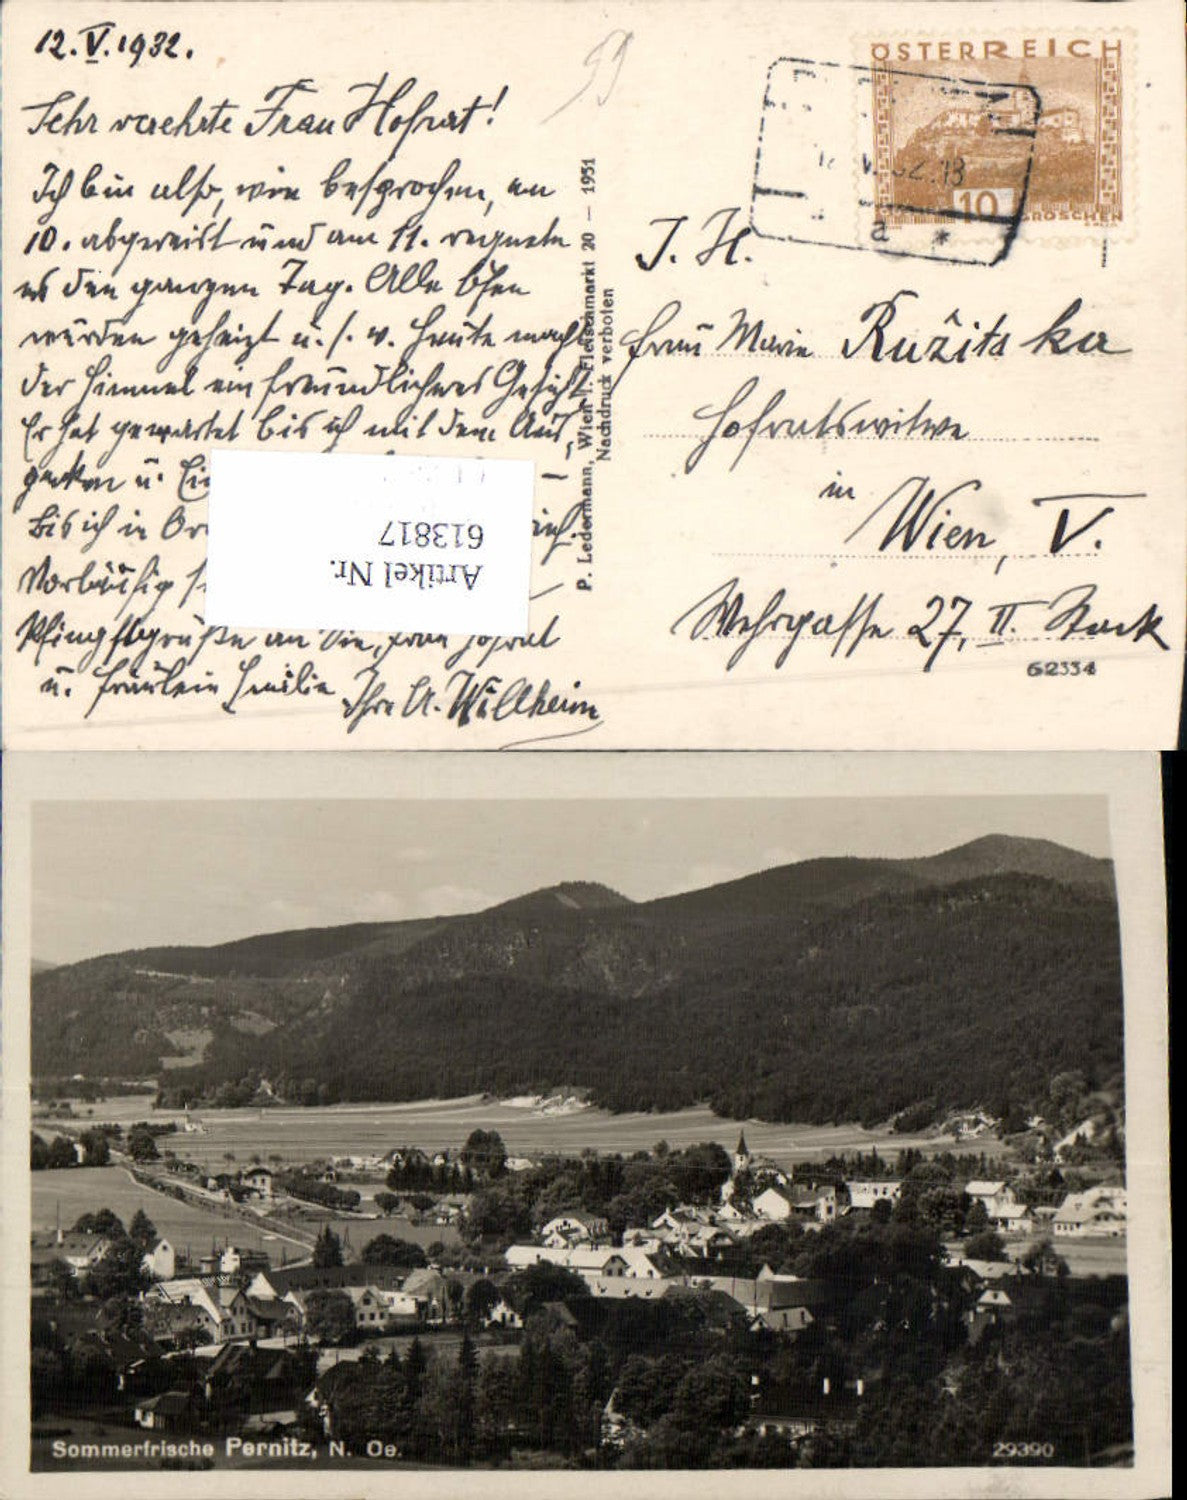 12.V.1932.
Sehr verehrte Frau Hofrat!
Ich bin also, wie besprochen, am
10. abgereist und am 11. regnete
es den ganzen Tag. Alle Öfen
wurden geheizt u. s. w. Heute macht
der Himmel ein freundlicheres Gesicht.
Er hat gewartet bis ich mit dem Aus-
packen u.
bis ich in
Vorläufig
Pfingstgrüße an Sie, Frau Hofrat
u. Fräulein Emilie Ihre A. Willheim
59
P. Ledermann, Wien I. Fleischmarkt 20 — 1951
Nachdruck verboten
Artikel Nr.
613817
ÖSTERREICH
10 GROSCHEN
a *
I. H.
Frau Marie Ružitska
Hofratswitwe
in Wien, V.
Wehrgasse 27, II. Stock
62334
Sommerfrische Pernitz, N. Oe.
29390